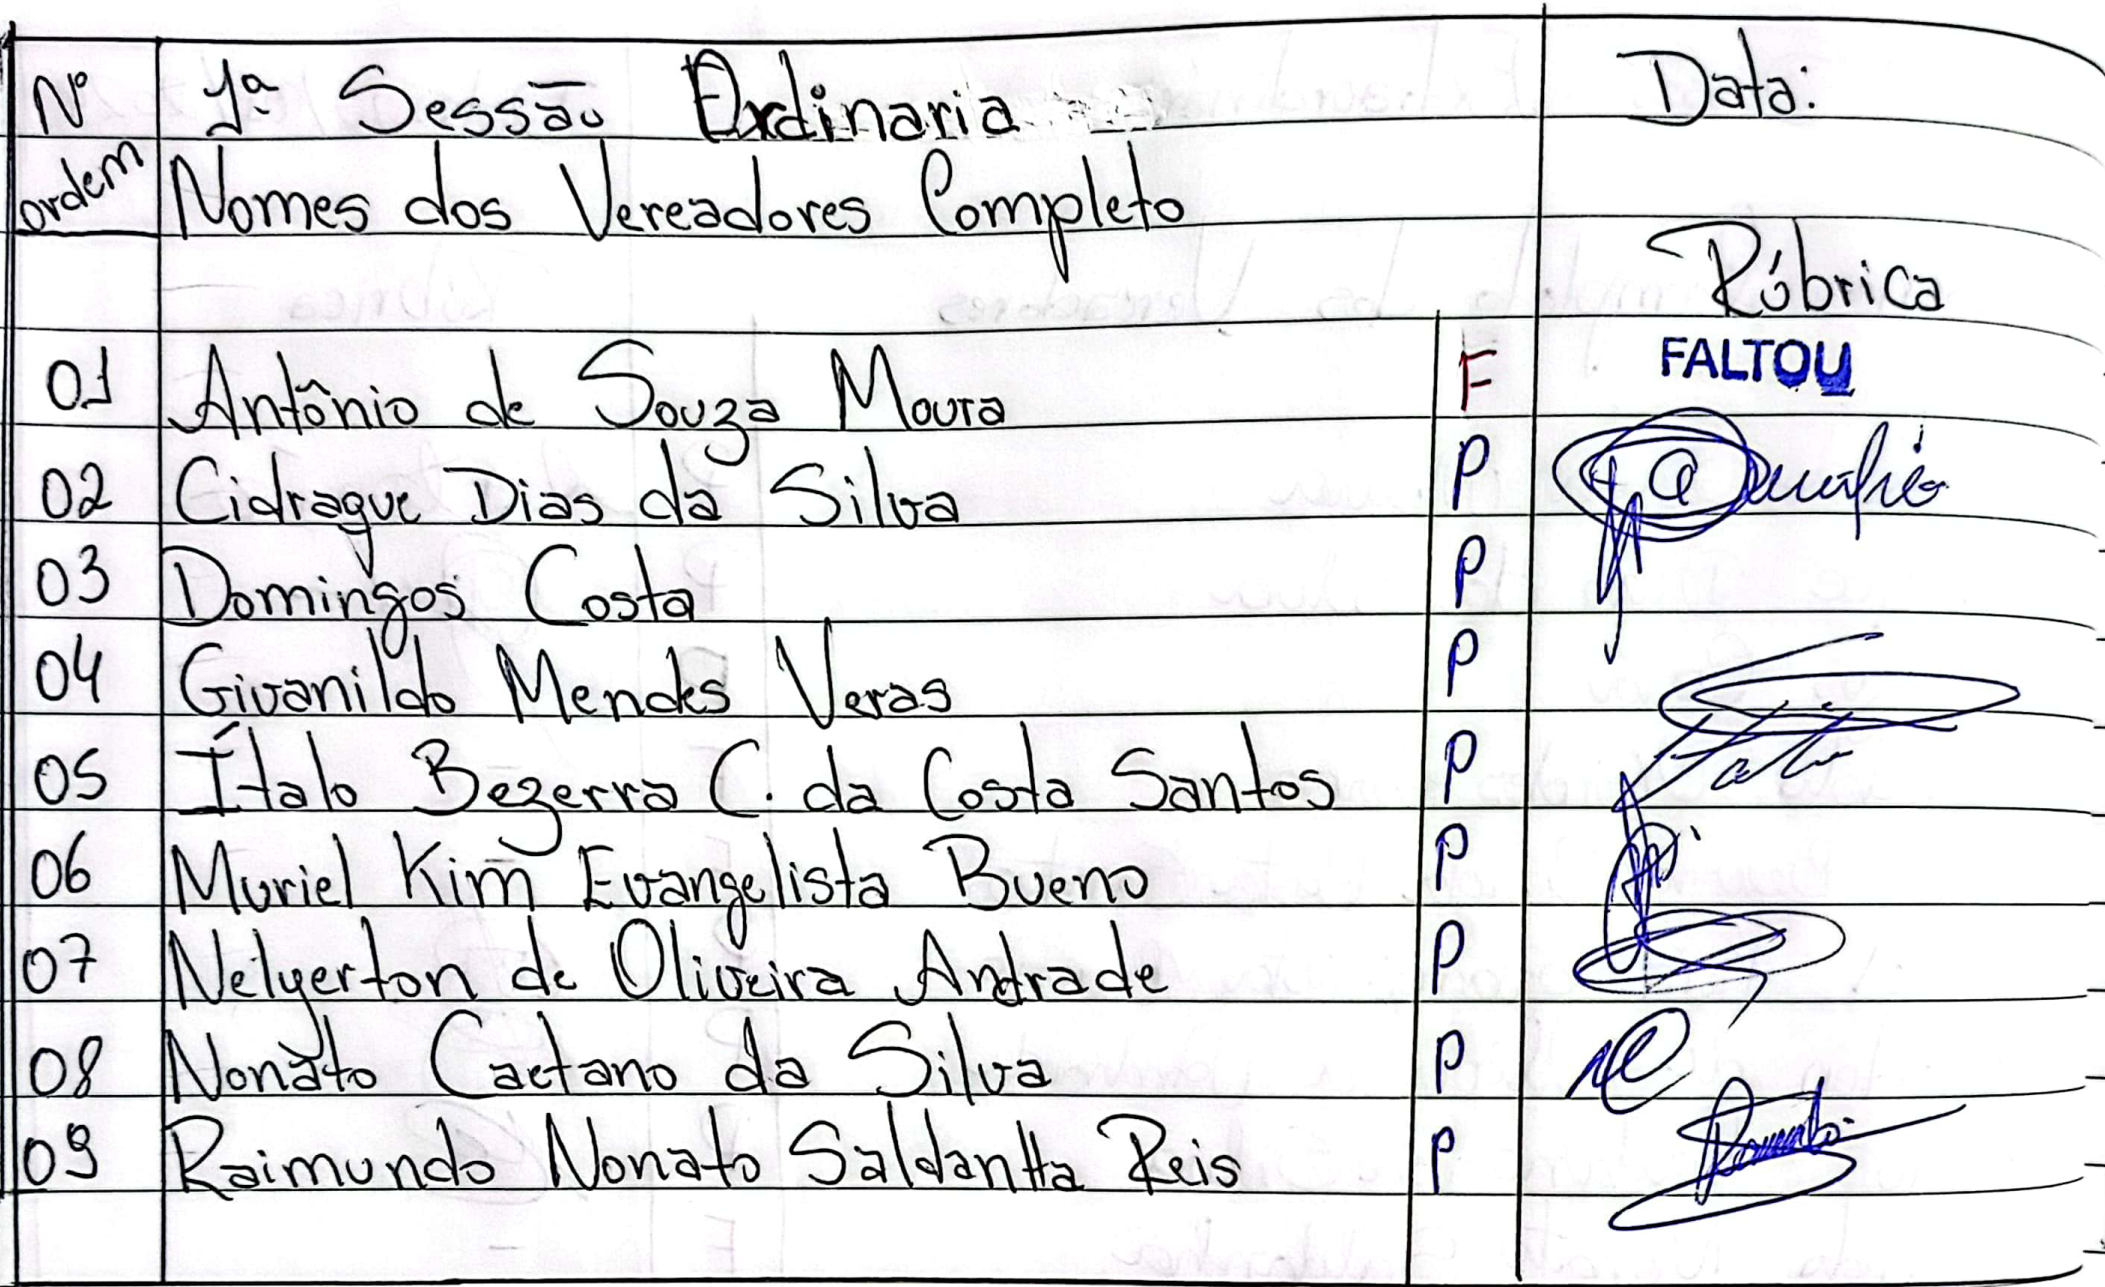 Nº ordem 1ª Sessão Ordinaria Data:
Nomes dos Vereadores Completo
Rúbrica
01 Antônio de Souza Moura F FALTOU
02 Cidrague Dias da Silva P
03 Domingos Costa P
04 Givanildo Mendes Veras P
05 Ítalo Bezerra C. da Costa Santos P
06 Muriel Kim Evangelista Bueno P
07 Nelyerton de Oliveira Andrade P
08 Nonato Caetano da Silva P
09 Raimundo Nonato Saldanha Reis P